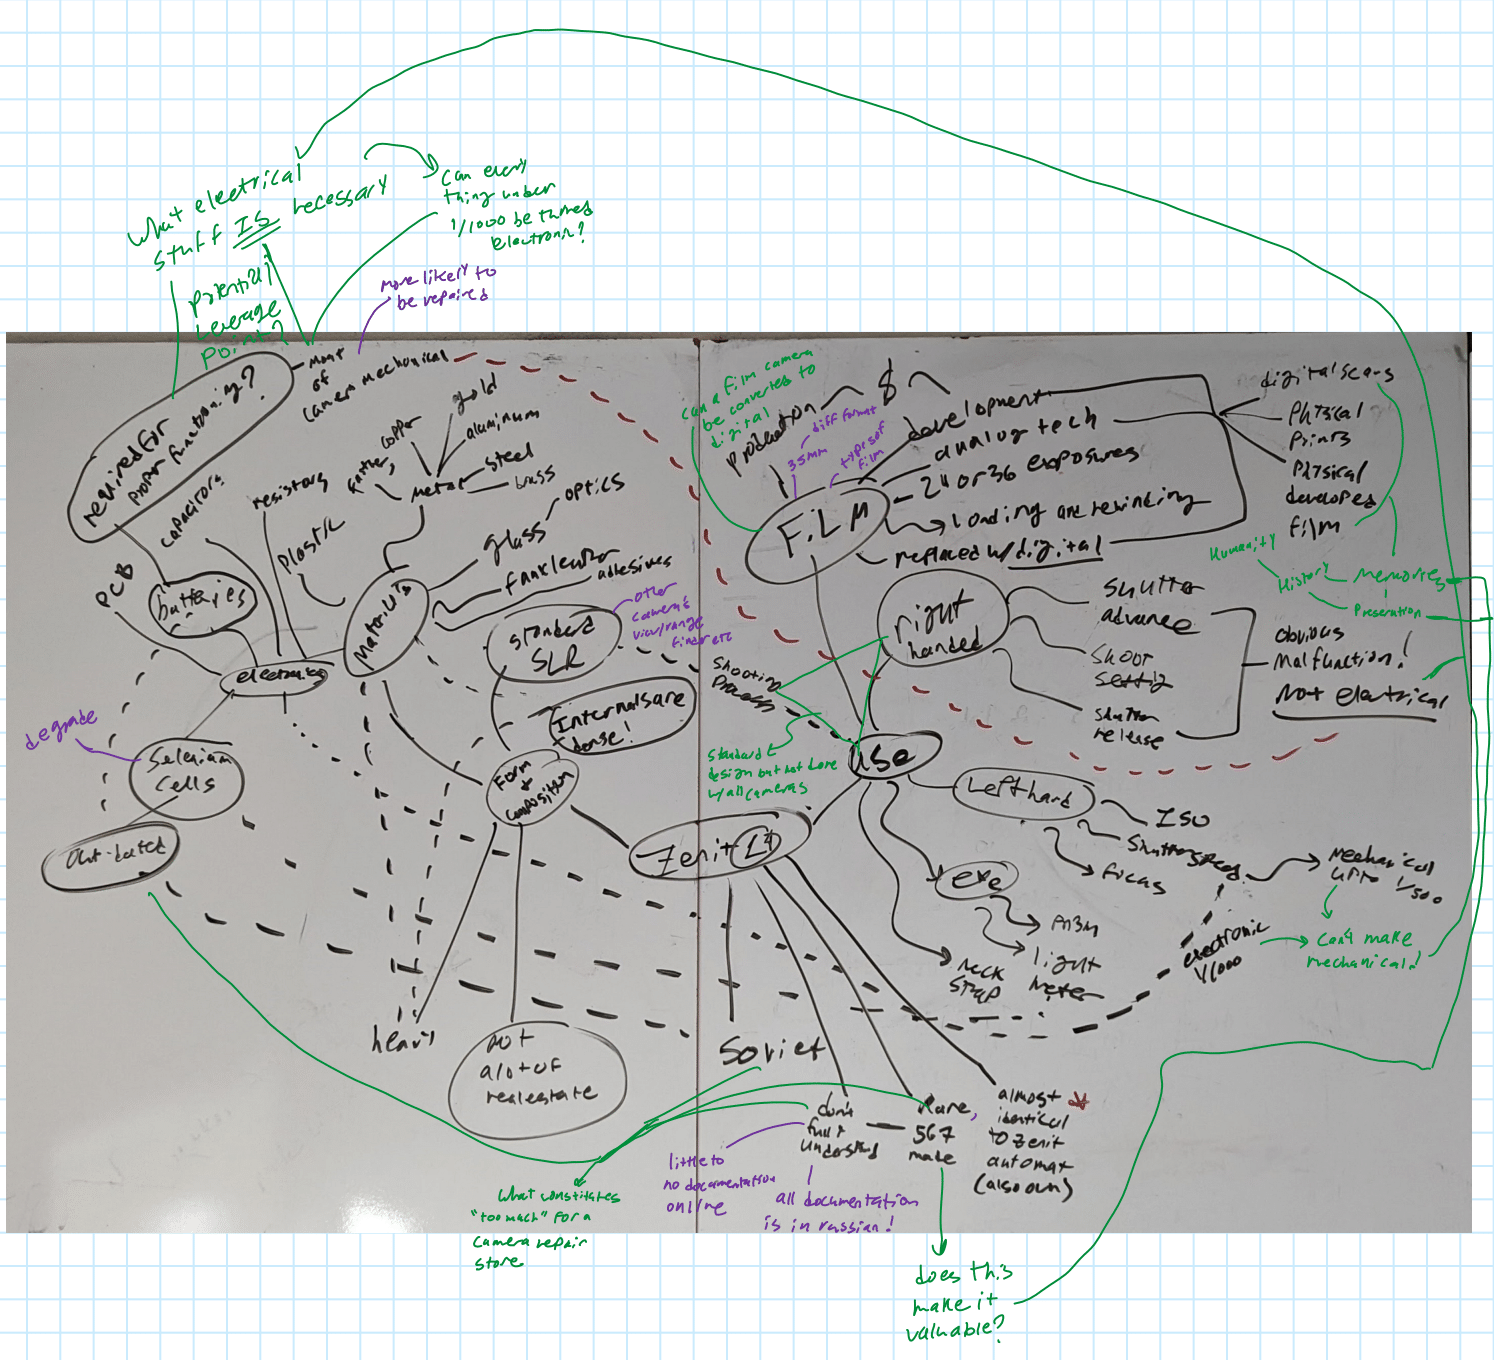 What electrical
stuff IS necessary
potential
Leverage
Point?
Can every
thing under
1/1000 be turned
electronic?
more likely to
be repaired
required for
proper functioning?
most
of
camera mechanical
gold
copper
aluminum
steel
brass
metal
capacitors
resistors
Plastic
glass
optics
adhesives
PCB
batteries
electronics
degrade
Selenium
Cells
out-dated
standard
SLR
other
camera's
view/range
finder etc
Internals are
dense!
Form
+
composition
heavy
not
a lot of
realestate
can a film camera
be converted to
digital
production
$
development
diff format
35mm
types of
film
FILM
analog tech
24 or 36 exposures
Loading and rewinding
replaced w/ digital
digital scans
Physical
Prints
Physical
developed
film
Humanity
History
Memories
right
handed
Shutter
advance
Shoot
shutter
release
obvious
malfunction!
Not electrical
Shooting
Process
Standard
design but not done
w/ all cameras
use
Left hand
ISO
focus
Mechanical
up to 1/500
Can't make
mechanical!
electronic
1/1000
eye
light
meter
neck
strap
Zenit
Soviet
don't
fully
understand
Rare,
567
made
almost
identical
to Zenit
automat
(also own)
little to
no documentation
online
all documentation
is in russian!
What constitutes
"too much" for a
camera repair
store
does this
make it
valuable?